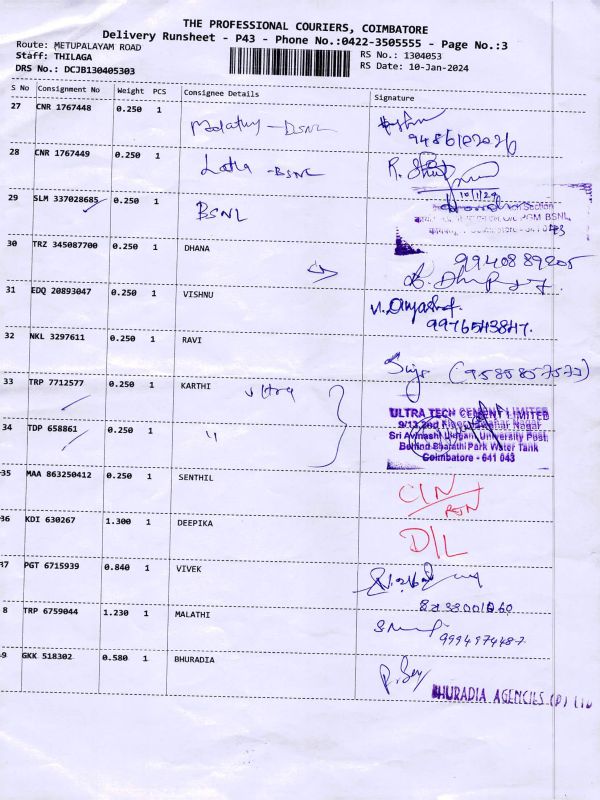 THE PROFESSIONAL COURIERS, COIMBATORE
Delivery Runsheet - P43 - Phone No.:0422-3505555 - Page No.:3
Route: METUPALAYAM ROAD
Staff: THILAGA
DRS No.: DCJB130405303
RS No.: 1304053
RS Date: 10-Jan-2024
S No Consignment No Weight PCS Consignee Details Signature
27 CNR 1767448 0.250 1 Malathy - BSNL
9486102026
28 CNR 1767449 0.250 1 Latha - BSNL R.
10/1/24
29 SLM 337028685 0.250 1 BSNL
PGM BSNL,
30 TRZ 345087700 0.250 1 DHANA 9940889205
31 EDQ 20893047 0.250 1 VISHNU
9976543847.
32 NKL 3297611 0.250 1 RAVI
33 TRP 7712577 0.250 1 KARTHI Ultra
ULTRA TECH CEMENT LIMITED
34 TDP 658861 0.250 1 "
Sri Avinashi Lingam University Post
Behind Bharathi Park Water Tank
Coimbatore - 641 043
35 MAA 863250412 0.250 1 SENTHIL
36 KDI 630267 1.300 1 DEEPIKA D/L
37 PGT 6715939 0.840 1 VIVEK
8 TRP 6759044 1.230 1 MALATHI
9994974487
9 GKK 518302 0.580 1 BHURADIA
BHURADIA AGENCIES (P) LTD